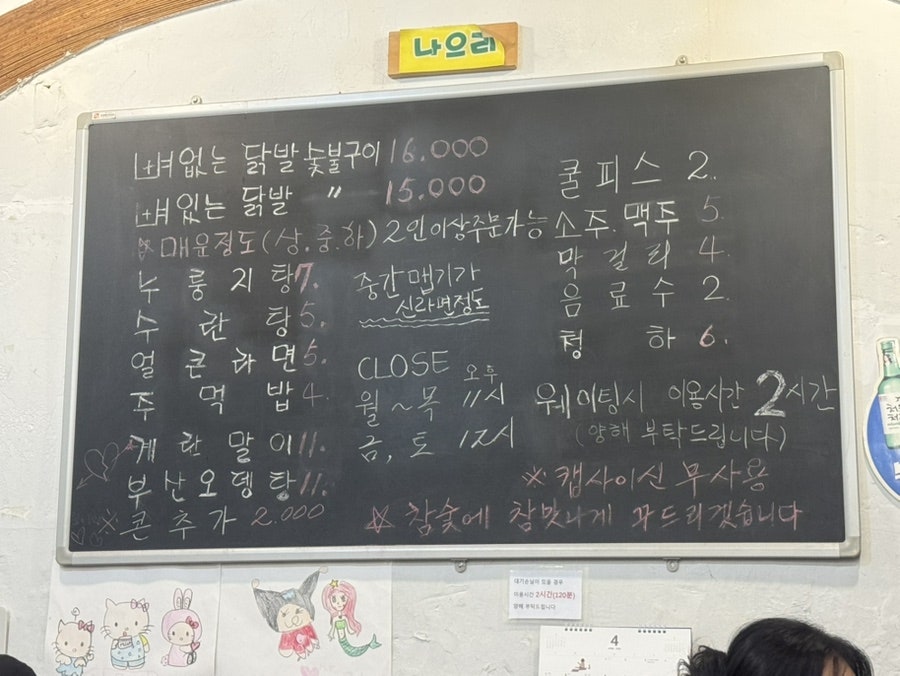 나으리
뼈없는 닭발 숯불구이 16.000
뼈있는 닭발 〃 15.000
※ 매운정도(상.중.하) 2인이상주문가능
누룽지탕 7.
수란탕 5.
얼큰라면 5.
주먹밥 4.
계란말이 11.
부산오뎅탕 11.
콘추가 2.000
중간맵기가
신라면정도
CLOSE 오후
월~목 11시
금, 토 12시
쿨피스 2.
소주.맥주 5.
막걸리 4.
음료수 2.
청하 6.
웨이팅시 이용시간 2시간
(양해 부탁드립니다)
※ 캡사이신 무사용
☆ 참숯에 참맛나게 꾸드리겠습니다
대기손님이 있을 경우
이용시간 2시간(120분)
양해 부탁드립니다
4